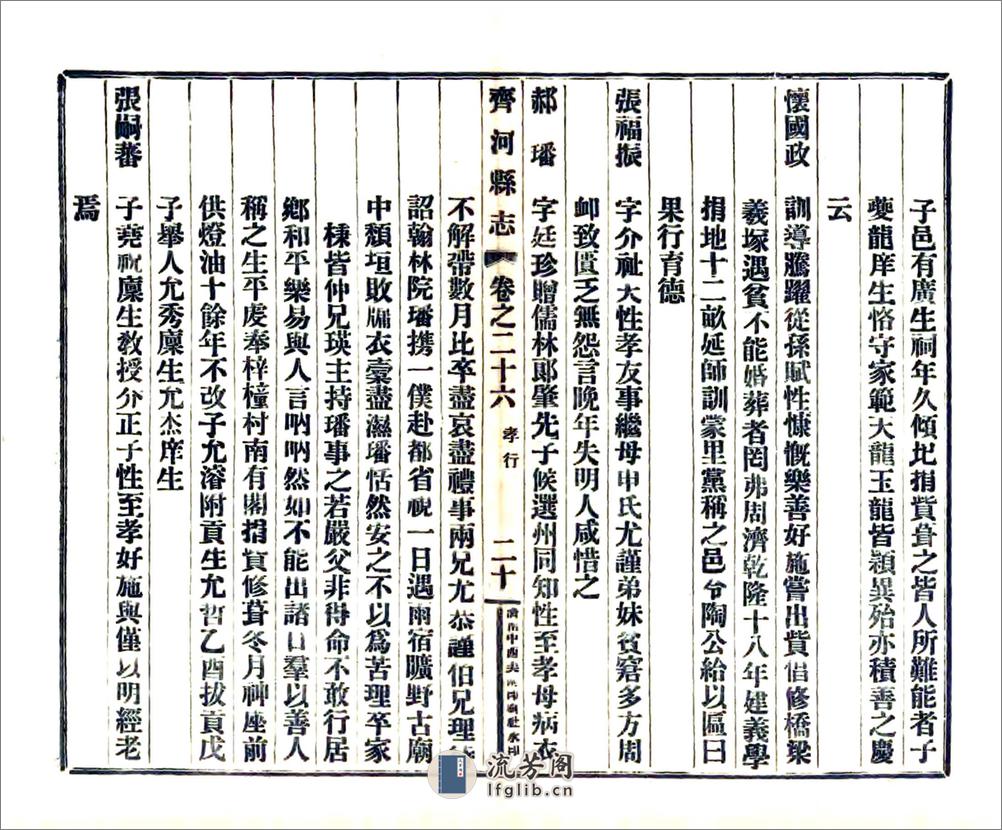 子邑有廣生祠年久傾圮捐貲葺之皆人所難能者子
夔龍庠生恪守家範大龍玉龍皆穎異殆亦積善之慶
云
懷國政 訓導騰躍從孫賦性慷慨樂善好施嘗出貲倡修橋梁
義塚遇貧不能婚葬者罔弗周濟乾隆十八年建義學
捐地十二畝延師訓蒙里黨稱之邑令陶公給以匾曰
果行育德
張福振 字介祉大性孝友事繼母申氏尤謹弟妹貧窘多方周
卹致匱乏無怨言晚年失明人咸惜之
郝璠 字廷珍贈儒林郎肇先子候選州同知性至孝母病衣
齊河縣志 卷之二十六 孝行 二十
不解帶數月比卒盡哀盡禮事兩兄尤恭謹伯兄理
詔翰林院璠攜一僕赴都省視一日遇雨宿曠野古廟
中頹垣敗牖衣橐盡濕璠恬然安之不以為苦理卒家
棟皆仲兄瑛主持璠事之若嚴父非得命不敢行居
鄉和平樂易與人言吶吶然如不能出諸口羣以善人
稱之生平虔奉梓橦村南有閣捐貲修葺冬月神座前
供燈油十餘年不改子允濬附貢生允哲乙酉拔貢戊
子舉人允秀廩生允杰庠生
張嗣蕃 子堯祝廩生教授介正子性至孝好施與僅以明經老
焉
流芳阁
lfglib.cn